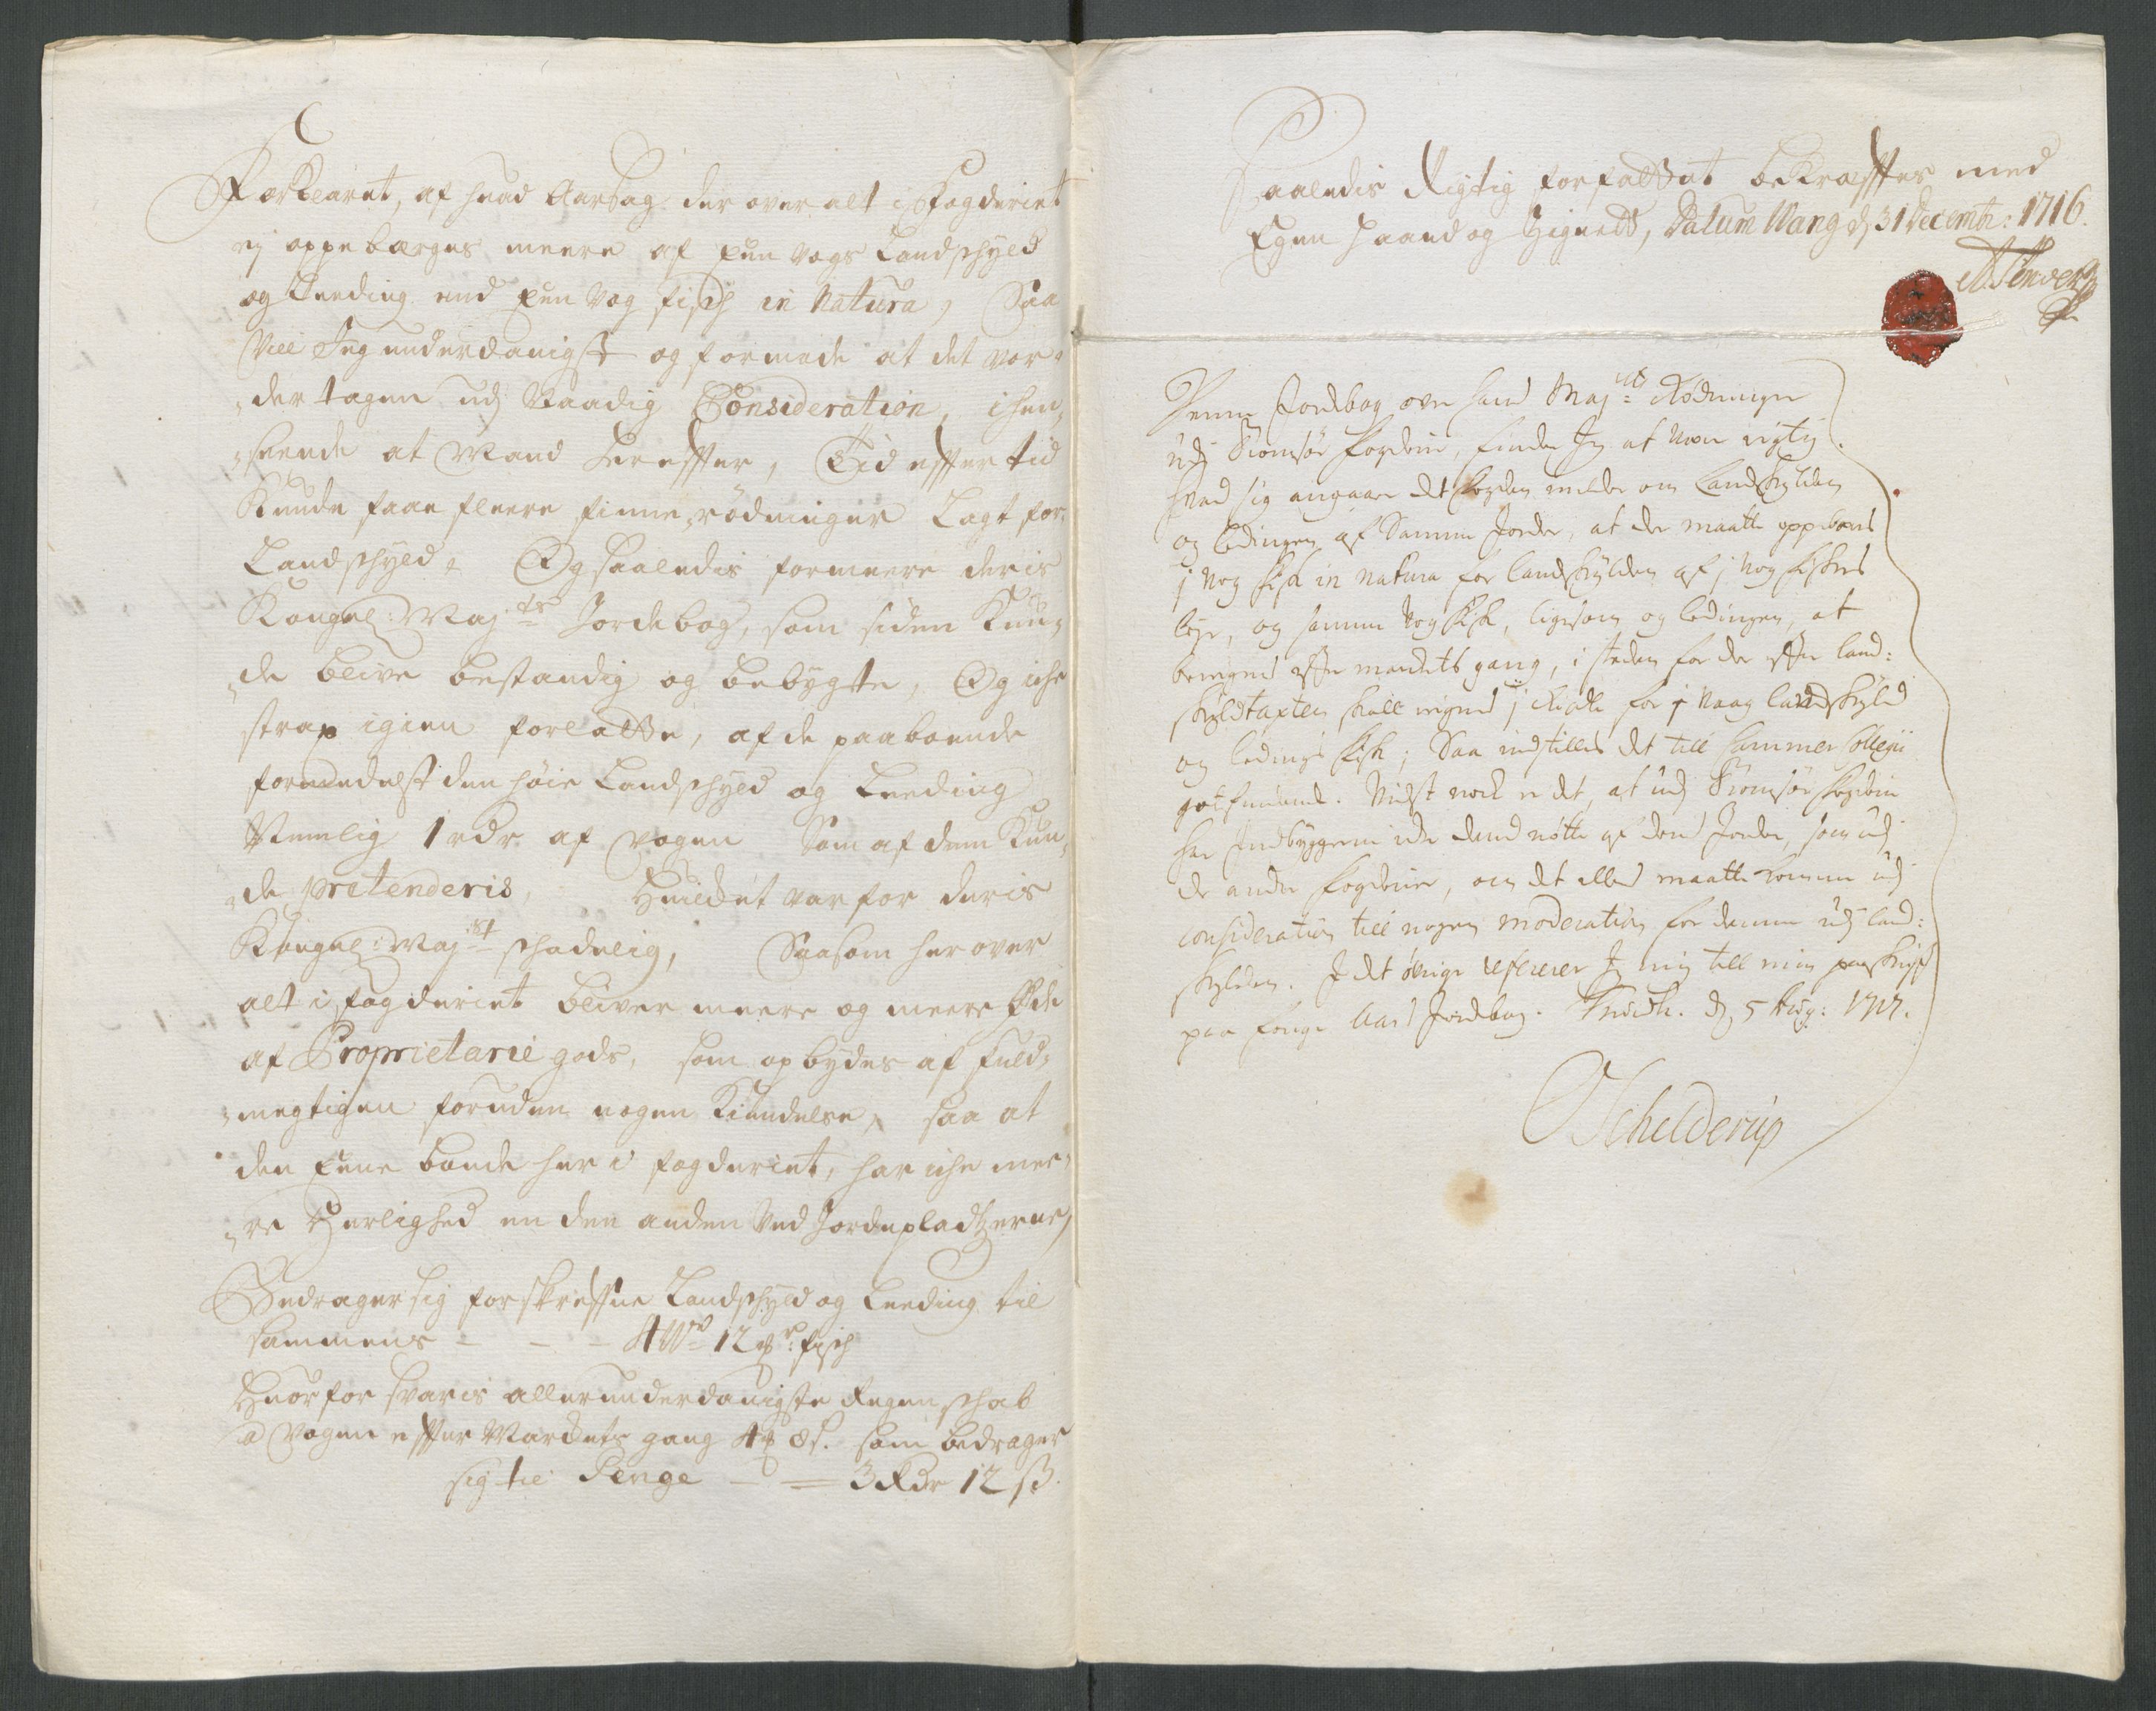 Forklaret, af huad Aarsag der over alt i Fogderiet
ej oppebærges meere af een wogs Landschyld
og Leeding end een wog fisch in Natura, Saa
vill Jeg underdanigst og formode at det vor¬
der tagen udj Naadig Consideration, i hen¬
seende at Mand herefter, Tid effter tid
Kunde faae fleere finne rødninger Lagt for
Landschyld, Og saaledis formeere deris
Kongel: May:ts Jordebog, som siden Kun¬
de blive bestandig og bebygte, Og iche
strax igien forladte, af de paaboende
formedelst den høie Landschyld og Leeding
Nemlig 1 rdr af wogen Som af dem Kun¬
de prætenderis, Huilchet var for deris
Kongel: May:st schadelig, Saasom her over
alt i fogderiet bliver meere og meere Øde
af Proprietarie gods, som opbydes af fuld¬
megtigen foruden nogen Kiendelse, saa at
den Eene bonde her i fogderiet, har iche mee¬
re Herlighed en den anden ved Jordepladtzerne,
Bedrager sig forskreffne Landschyld og Leeding til
sammens - - - 4 W 12 pd: fisch
Huorfor svaris allerunderdanigste Regenschab
a Wogen effter Marckets gang som bedrager
sig til Penge - = 3 Rdr 12 s.
Saaledis Rigtig forfattet bekræffter med
Egen Haand og Zignete, Datum Wang d 31 Decembr: 1716.
Denne Jordebog over hans May:ts Rødninger
udj Tromsøe fogderie, finder Jeg at være rigtig.
hvad sig angaaer det fogden melder om Landskylden
og ledingen af samme Jorder, at der maatte oppebæres
j wog fisk in natura for landskylden af j wog fiskes
leje, og samme wog fisk, ligesom og ledingen, at
beregnes efter marckets gang, i steden for der efter land:
skyldtaxten skall regnes j Rixdlr for j waag landskyld
og ledings fisk; Saa indstilles det till Cammer Collegii
gotfindende. Vidst nock er det, at udj Tromsøe fogderie
har Indbyggerne icke dend nøtte af deres Jorder, som udj
de andre fogderier, om det ellers maatte komme udj
consideration till nogen moderation for denne udj land:
skylden. I det øvrige refererer Jeg mig till min paaskrift
paa forige Aars Jordebog. Trundh. d 5 Aug: 1717.
Schelderup